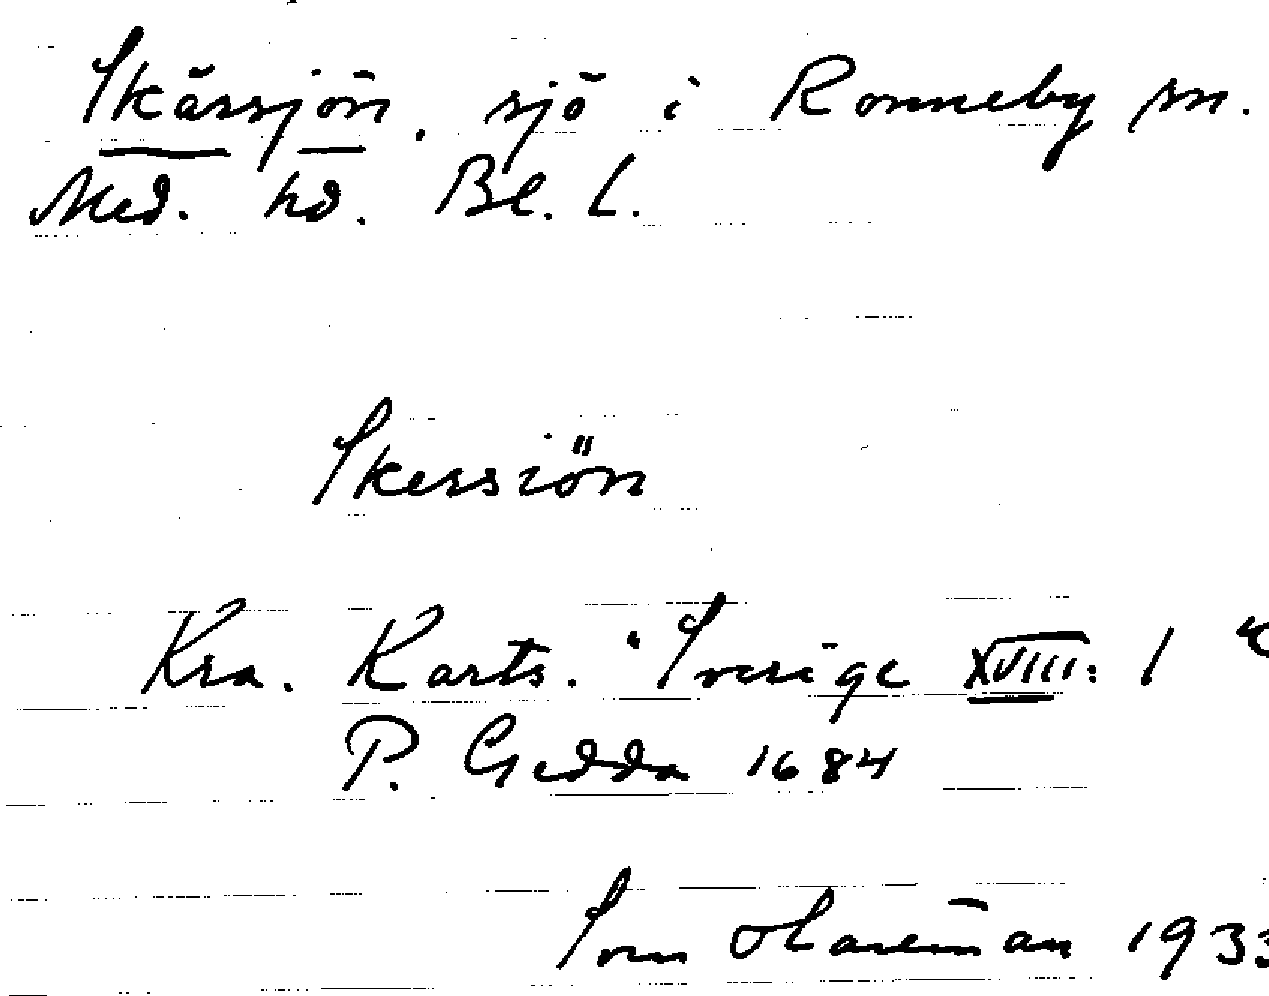 Skärsjön. sjö i Ronneby sn.
Med. hd. Bl. l.
Skerssiön
Kra. Karts. Sverige XVIII: 1
P. Gedda 1684
1933